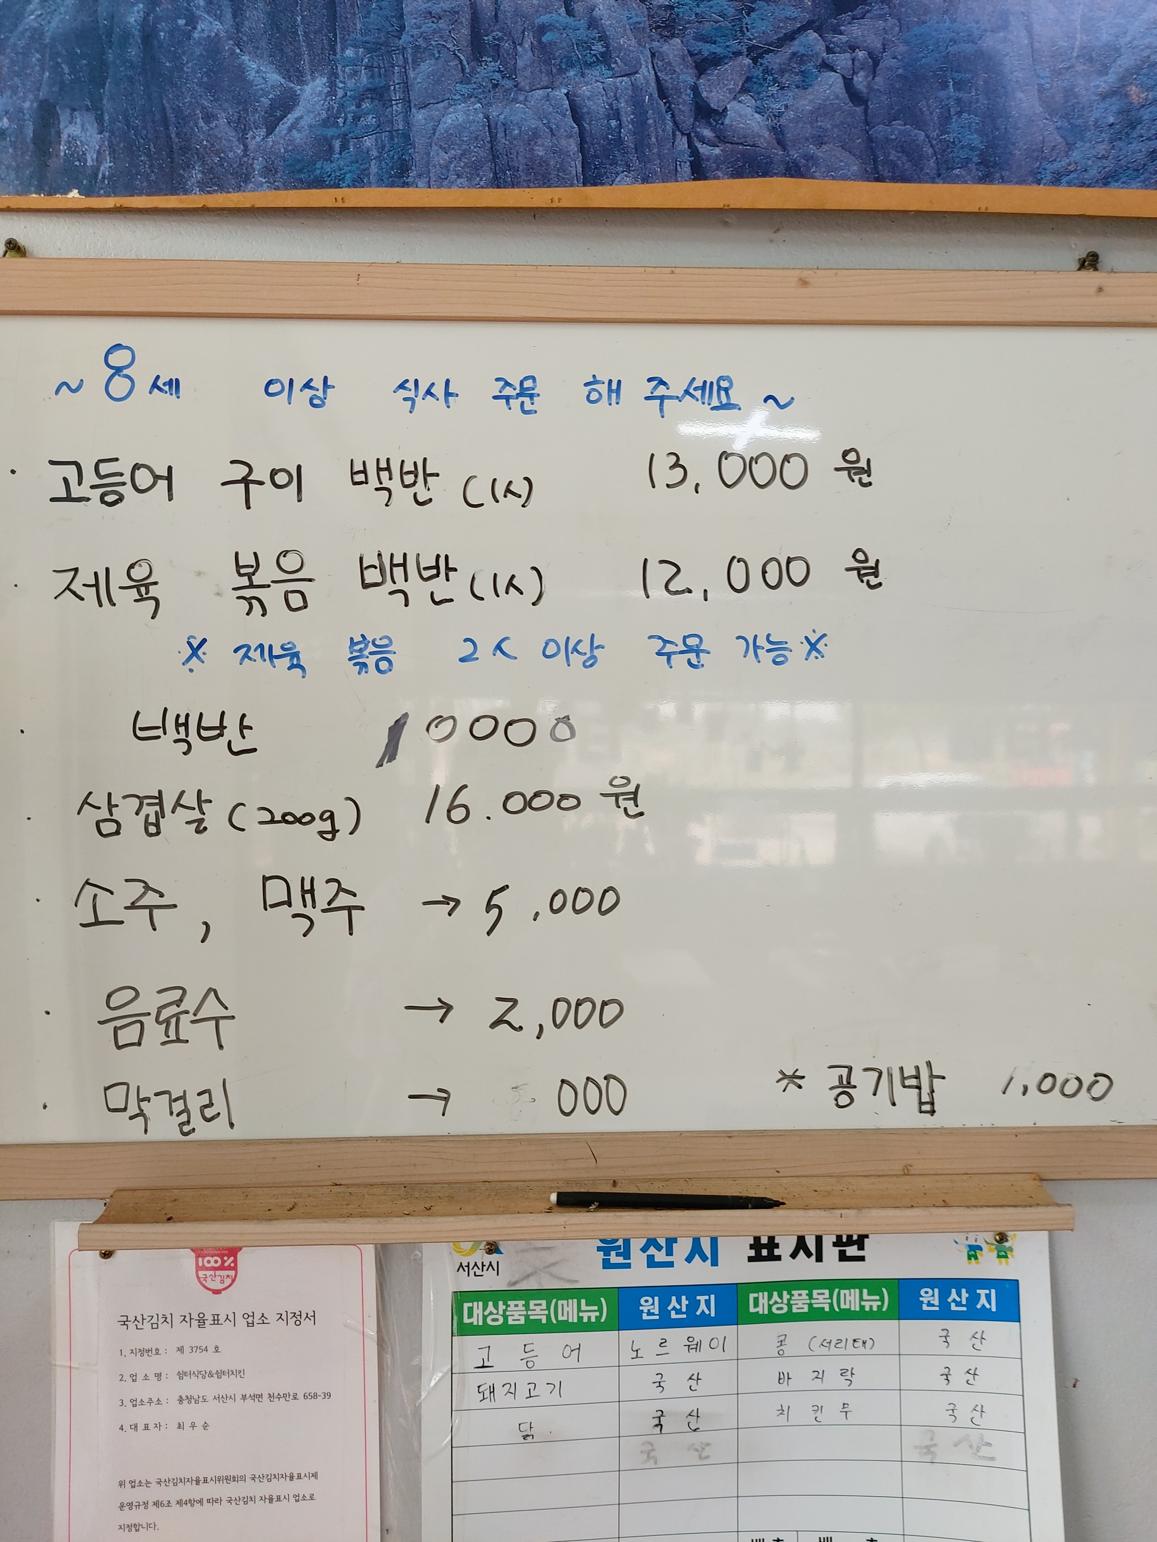 ~ 8세 이상 식사 주문 해 주세요 ~
· 고등어 구이 백반 (1人) 13,000 원
· 제육 볶음 백반 (1人) 12,000 원
※ 제육 볶음 2人 이상 주문 가능 ※
· 백반 10000
· 삼겹살 (200g) 16.000 원
· 소주, 맥주 → 5,000
· 음료수 → 2,000
· 막걸리 → 000
* 공기밥 1,000
100%
국산김치
국산김치 자율표시 업소 지정서
1. 지정번호 : 제 3754 호
2. 업 소 명 : 쉼터식당&쉼터치킨
3. 업소주소 : 충청남도 서산시 부석면 천수만로 658-39
4. 대 표 자 : 최 우 순
위 업소는 국산김치자율표시위원회의 국산김치자율표시제
운영규정 제6조 제4항에 따라 국산김치 자율표시 업소로
지정합니다.
서산시
원산지 표시판
대상품목(메뉴) 원산지 대상품목(메뉴) 원산지
고등어 노르웨이 콩 (서리태) 국산
돼지고기 국산 바지락 국산
닭 국산 치킨무 국산
국산 국산